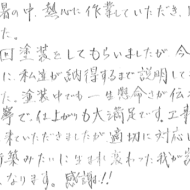 暑の中、熱心に作業していただき、
た。
回塗装をしてもらいましたが 今
に、私達が納得するまで説明して
た。塗装中でも一生懸命さが伝
寧で、仕上がりも大満足です。工事
来ていただきましたが 適切に対応し
築みたいに生まれ変わった我が家
なります。感謝!!